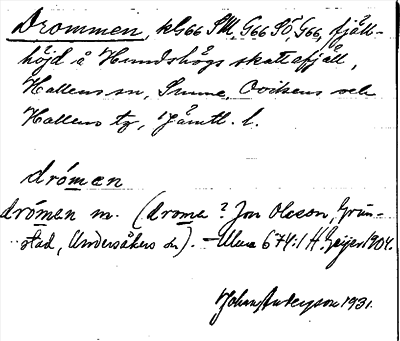 Drommen, kG66 SM, G66 SO, G66, fjäll-
höjd å Hundshögs skattefjäll,
Hallens sn, Sunne, Ovikens och
Hallens tg, Jämtl. l.
drómen
drómen m. (drome ? Jon Olsson, Grün-
stad, Undersåkers sn). – Ulma 674:1 H. Geijer 1904.
John Anderson 1931.